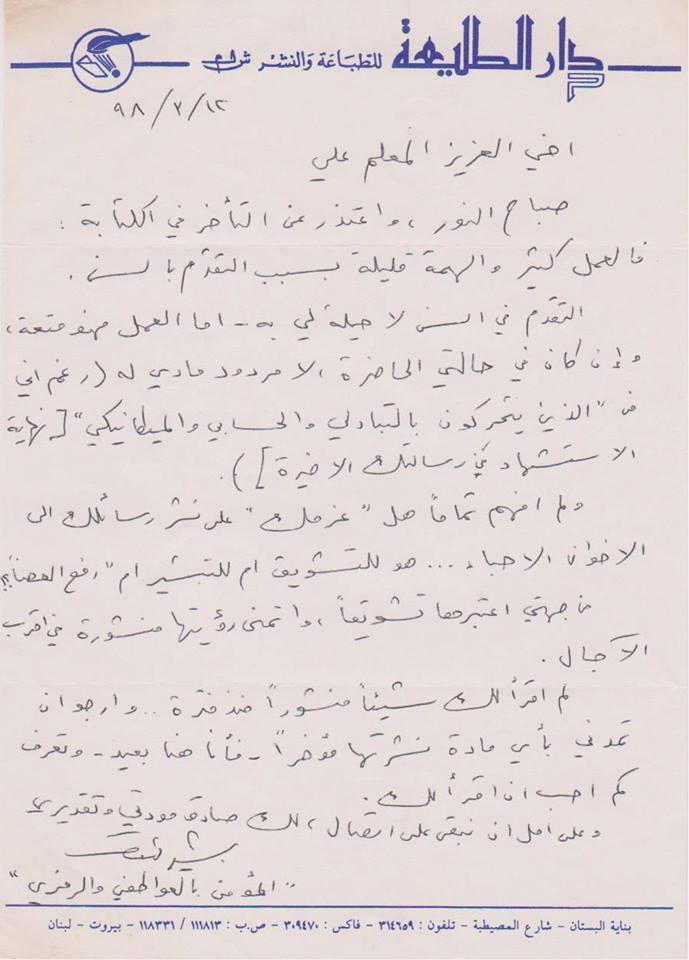 دار الطليعة للطباعة والنشر ش م ل
٩٨/٣/١٢
اخي العزيز المعلم علي
صباح النور، واعتذر عن التأخر في الكتابة :
فالعمل كثير والهمة قليلة بسبب التقدّم بالسن .
التقدّم في السن لا حيلة لي به - اما العمل فهو متعة،
وإن كان في حالتي الحاضرة، لا مردود مادي له (رغم اني
من "الذين يتحركون بالتبادلي والحسابي والميكانيكي" [نهاية
الاستشهاد في رسالتك الاخيرة]).
ولم افهم تماماً هل "عزمك" على نشر رسائلك الى
الاخوان الاحباء ... هو للتشويق ام للتبشير ام "رفع العصا"؟!
من جهتي اعتبرها تشويقاً، واتمنى رؤيتها منشورة في اقرب
الآجال .
لم اقرأ لك شيئاً منشوراً منذ فترة .. وارجو ان
تمدني بأي مادة نشرتها مؤخراً - فأنا هنا بعيد - وتعرف
كم احب ان اقرأ لك .
وعلى امل ان نبقى على اتصال، لك صادق مودتي وتقديري
"المؤمن بالعواطفي والرمزي"
بناية البستان - شارع المصيطبة - تلفون : ٣١٤٦٥٩ - فاكس : ٣٠٩٤٧٠ - ص.ب : ١١١٨١٣ / ١١٨٣٣١ - بيروت - لبنان